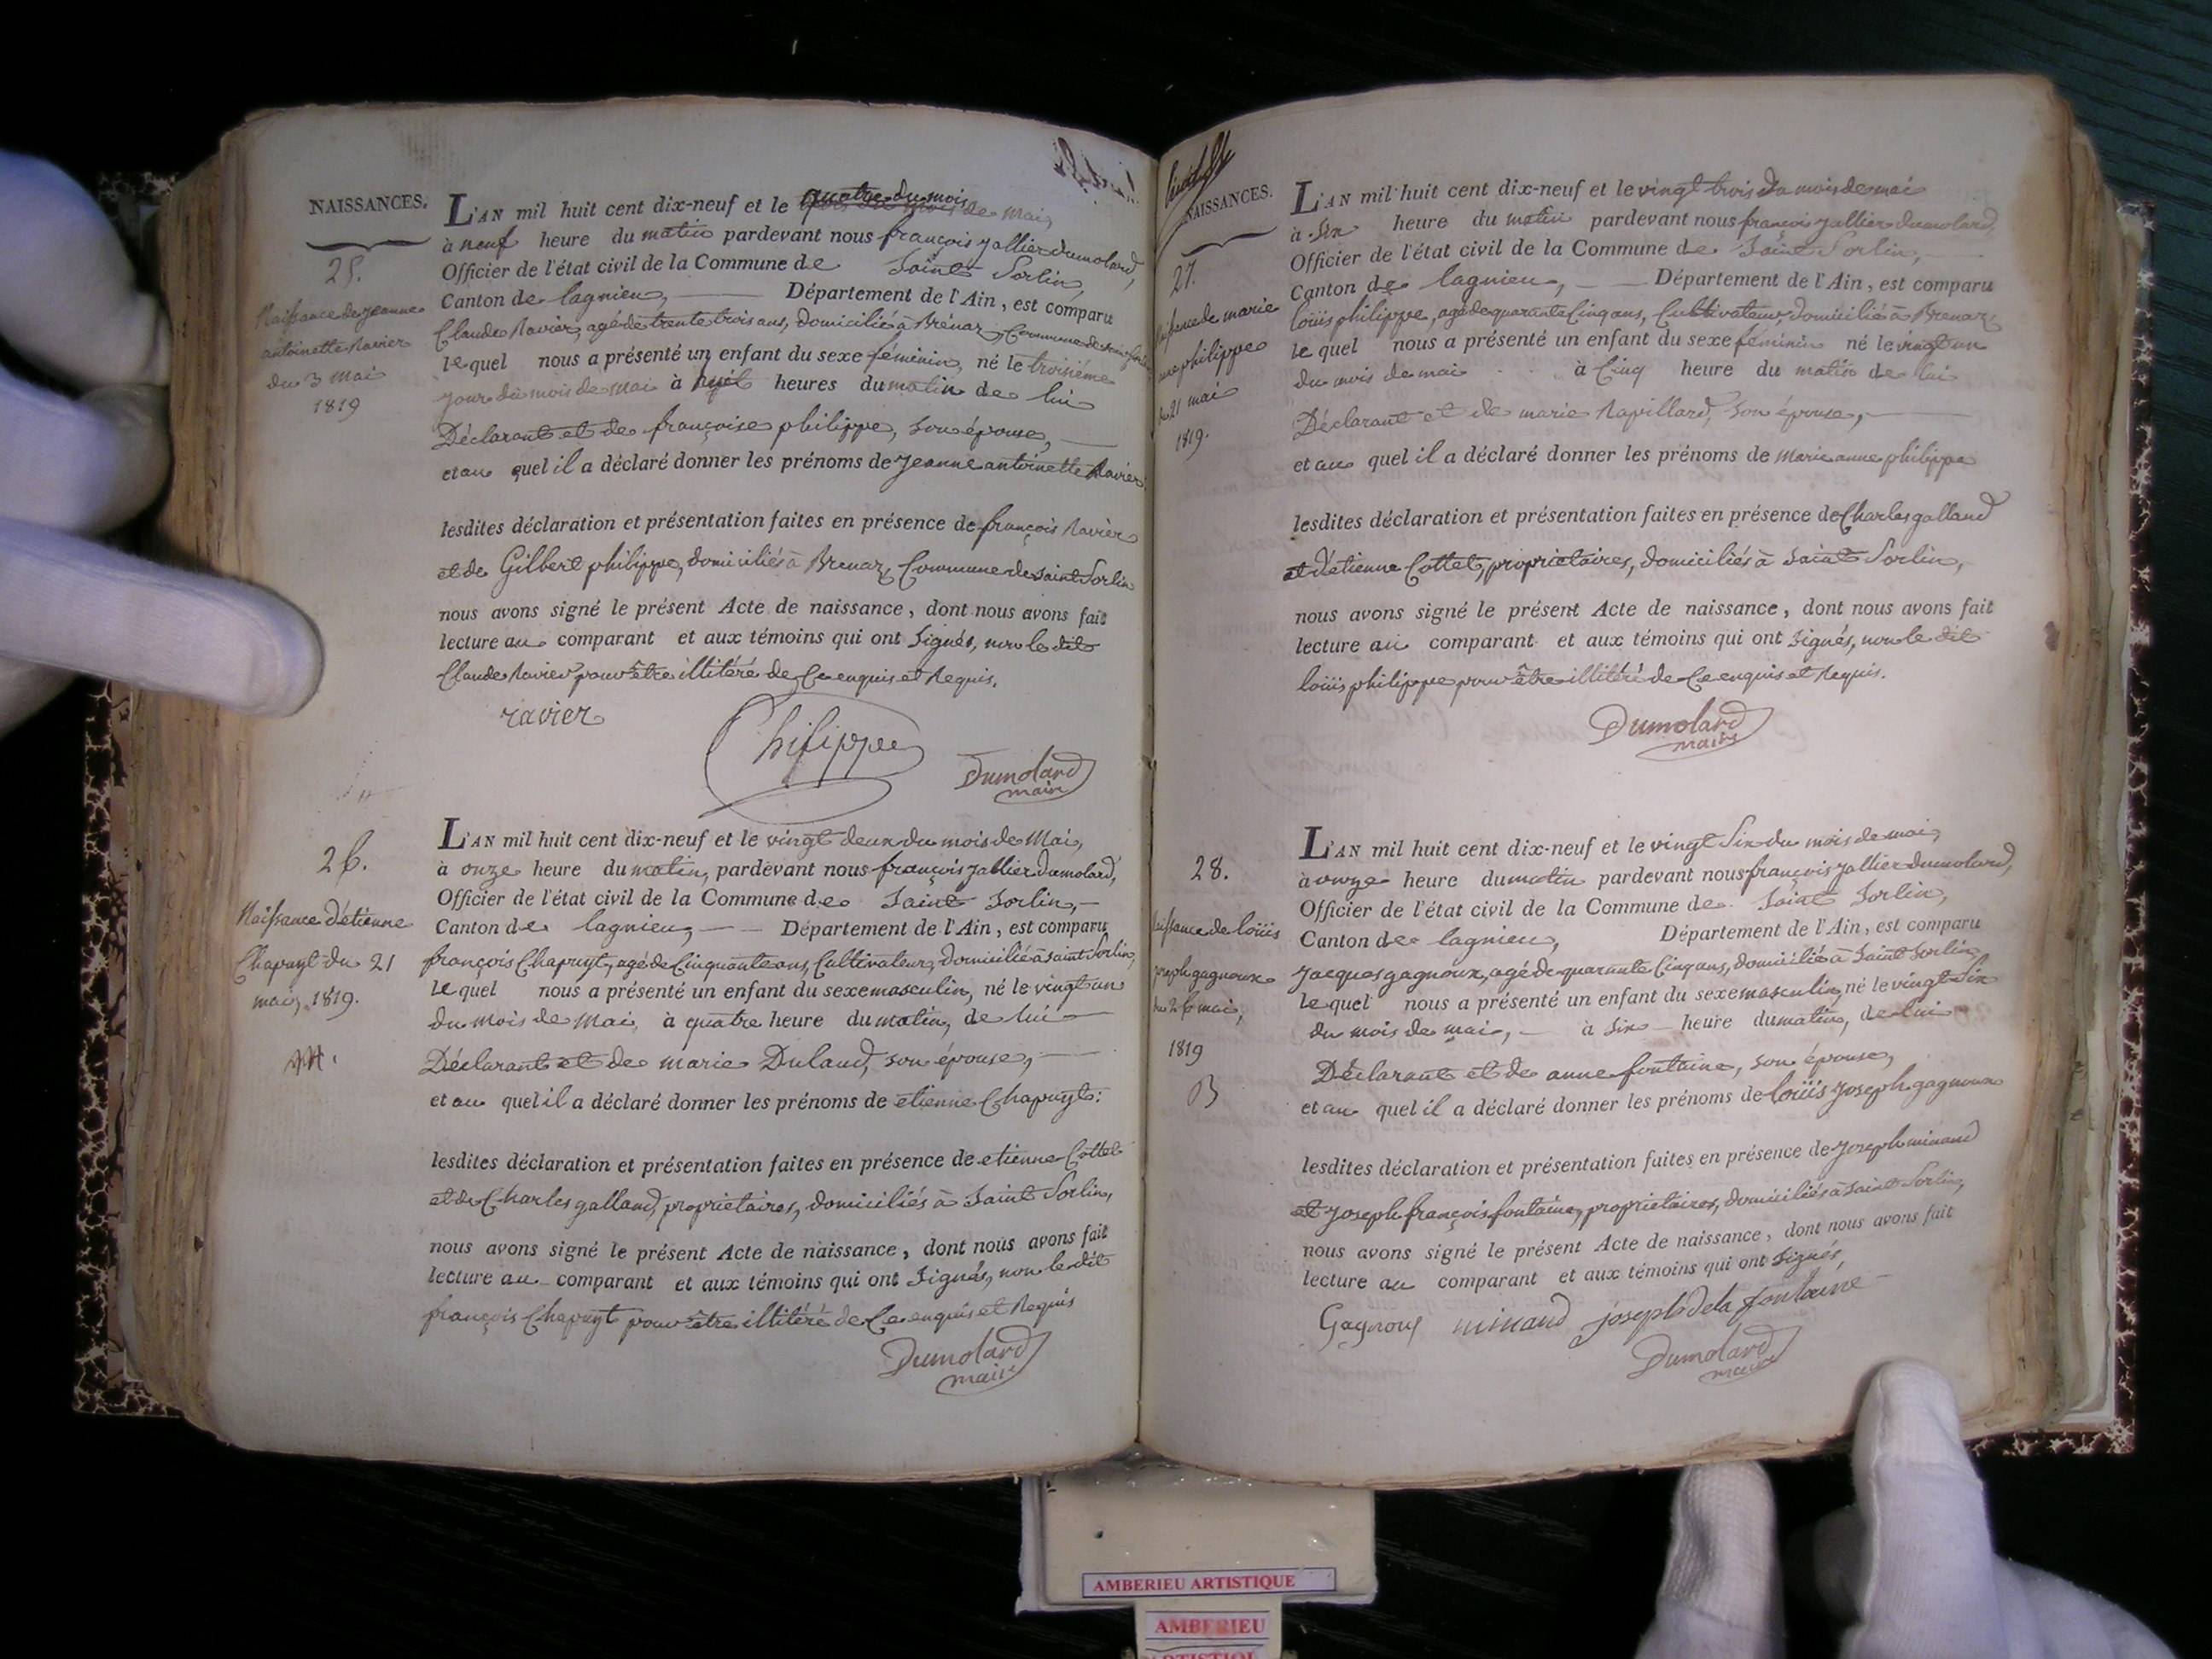 NAISSANCES.
25.
Naissance de jeanne
antoinette Ravier
du 3 mai
1819
L'AN mil huit cent dix-neuf et le quatre du mois de mai,
à neuf heure du matin pardevant nous françois jallier dumolard,
Officier de l'état civil de la Commune de Saint Sorlin,
Canton de lagnieu, Département de l'Ain, est comparu
Claude Ravier, agé de trente trois ans, domicilié à Brénaz, Commune de Saint Sorlin
lequel nous a présenté un enfant du sexe féminin, né le troisième
jour du mois de mai à huit heures du matin de lui
Déclarant et de françoise philippe, son épouse,
et au quel il a déclaré donner les prénoms de jeanne antoinette Ravier
lesdites déclaration et présentation faites en présence de françois Ravier
et de Gilbert philippe, domiciliés à Brenaz, Commune de saint Sorlin
nous avons signé le présent Acte de naissance, dont nous avons fait
lecture au comparant et aux témoins qui ont signés, non le dit
Claude Ravier pour être illitéré de Ce enquis et Requis.
ravier Philippe Dumolard
maire
26.
Naissance d'étienne
Chapuyt du 21
mai, 1819.
L'AN mil huit cent dix-neuf et le vingt deux du mois de Mai,
à onze heure du matin, pardevant nous françois jallier Dumolard,
Officier de l'état civil de la Commune de Saint Sorlin,
Canton de lagnieu, Département de l'Ain, est comparu
françois Chapuyt, agé de Cinquante ans, Cultivateur, domicilié à saint Sorlin,
lequel nous a présenté un enfant du sexe masculin, né le vingt un
du mois de Mai, à quatre heure du matin, de lui
Déclarant et de marie Dulaud, son épouse,
et au quel il a déclaré donner les prénoms de etienne Chapuyt:
lesdites déclaration et présentation faites en présence de etienne Cottet
et de Charles galland, proprietaires, domiciliés à Saint Sorlin,
nous avons signé le présent Acte de naissance, dont nous avons fait
lecture au comparant et aux témoins qui ont signés, non le dit
françois Chapuyt pour être illitéré de Ce enquis et Requis
Dumolard
maire
NAISSANCES.
27.
de marie
anne philippe
du 21 mai
1819.
L'AN mil huit cent dix-neuf et le vingt trois du mois de mai
à six heure du matin pardevant nous françois jallier dumolard,
Officier de l'état civil de la Commune de Saint Sorlin,
Canton de lagnieu, Département de l'Ain, est comparu
loüis philippe, agé de quarante Cinq ans, Cultivateur, domicilié à Brenaz,
lequel nous a présenté un enfant du sexe féminin né le vingt un
du mois de mai à Cinq heure du matin de lui
Déclarant et de marie Rapillard, son épouse,
et au quel il a déclaré donner les prénoms de marie anne philippe
lesdites déclaration et présentation faites en présence de Charles galland
et d'étienne Cottet, proprietaires, domiciliés à Saint Sorlin,
nous avons signé le présent Acte de naissance, dont nous avons fait
lecture au comparant et aux témoins qui ont signés, non le dit
loüis philippe pour être illitéré de Ce enquis et Requis.
Dumolard
maire
28.
naissance de loüis
joseph gagnoux
du 26 mai,
1819
L'AN mil huit cent dix-neuf et le vingt Six du mois de mai,
à onze heure du matin pardevant nous françois jallier dumolard,
Officier de l'état civil de la Commune de Saint Sorlin,
Canton de lagnieu, Département de l'Ain, est comparu
jacques gagnoux, agé de quarante Cinq ans, domicilié à Saint Sorlin,
lequel nous a présenté un enfant du sexe masculin, né le vingt Six
du mois de mai, à six heure du matin, de lui
Déclarant et de anne fontaine, son épouse,
et au quel il a déclaré donner les prénoms de loüis joseph gagnoux
lesdites déclaration et présentation faites en présence de joseph minand
et joseph françois fontaine, proprietaires, domiciliés à Saint Sorlin,
nous avons signé le présent Acte de naissance, dont nous avons fait
lecture au comparant et aux témoins qui ont signés,
Gagnoux minand joseph dela fontaine
Dumolard
maire
AMBERIEU ARTISTIQUE
AMBERIEU